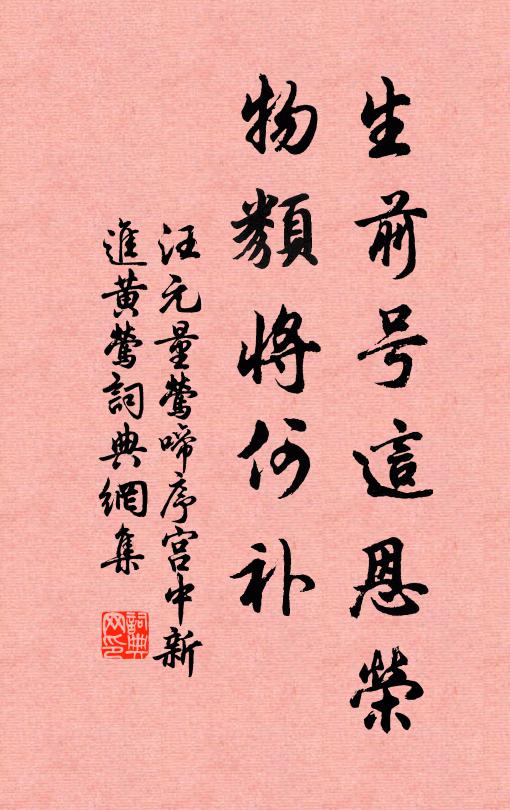 生前号這恩榮
物類將何补
汪元量鶯啼序宮中新
進黃鶯詞典網集
詞典
网印